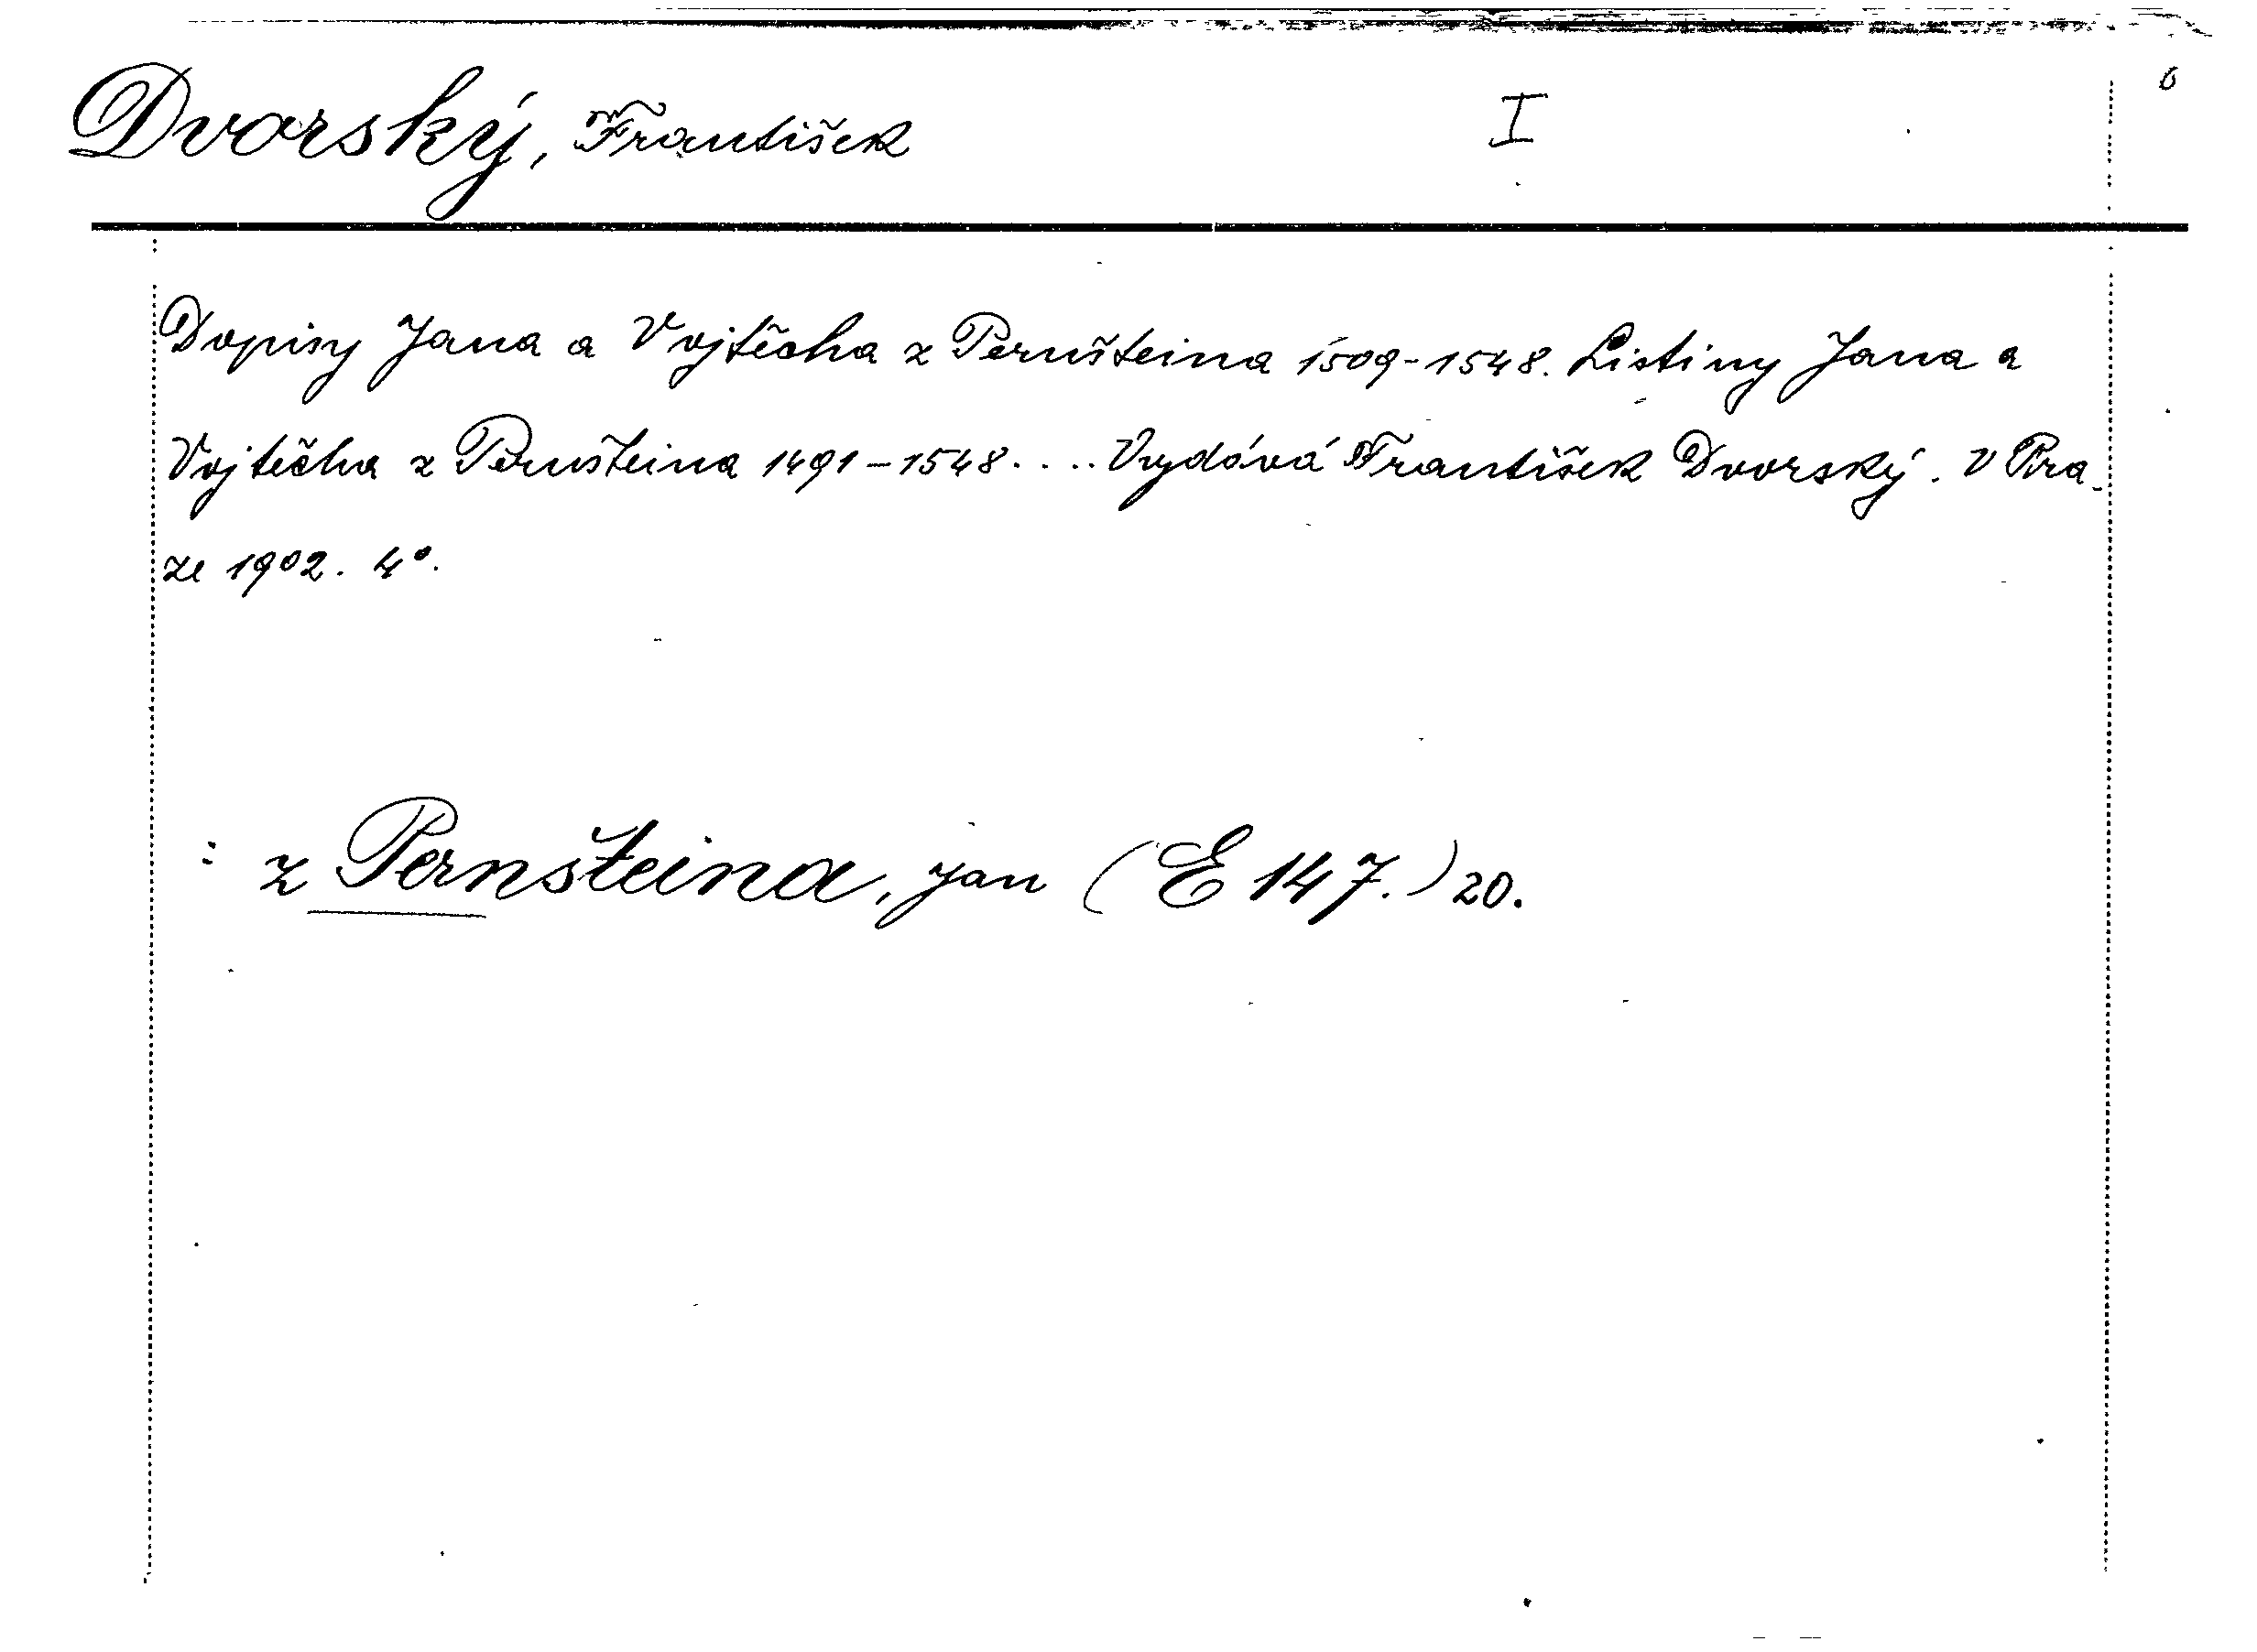 Dvorský, František I 6
Dopisy Jana a Vojtěcha z Pernšteina 1509-1548. Listiny Jana a
Vojtěcha z Pernšteina 1491-1548.... Vydává František Dvorský. V Pra-
ze 1902. 4°.
: z Pernšteina, Jan (E 147.) 20.